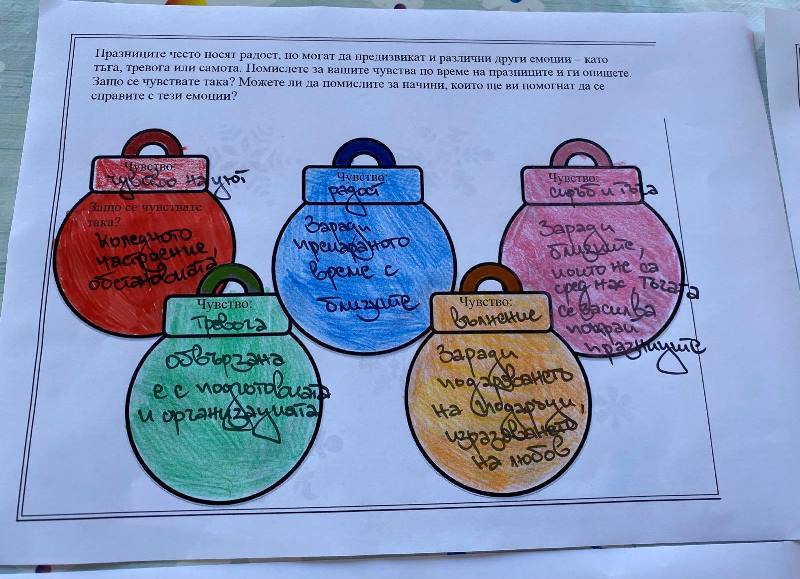 Празниците често носят радост, но могат да предизвикат и различни други емоции – като
тъга, тревога или самота. Помислете за вашите чувства по време на празниците и ги опишете.
Защо се чувствате така? Можете ли да помислите за начини, които ще ви помогнат да се
справите с тези емоции?
Чувство:
чувство на уют
Защо се чувствате
така?
Коледното
настроение,
обстановката
Чувство:
радост
Заради
прекараното
време с
близките
Чувство:
скръб и тъга
Заради
близките,
които не са
сред нас. Тъгата
се засилва
покрай
празниците
Чувство:
тревога
обвързана
е с подготовката
и организацията
Чувство:
вълнение
Заради
подаряването
на подаръци,
изразяването
на любов